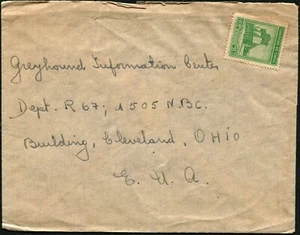 Greyhound Information Center
Dept. R 67; 1505 N.B.C.
Building, Cleveland, OHIO
E. U. A.